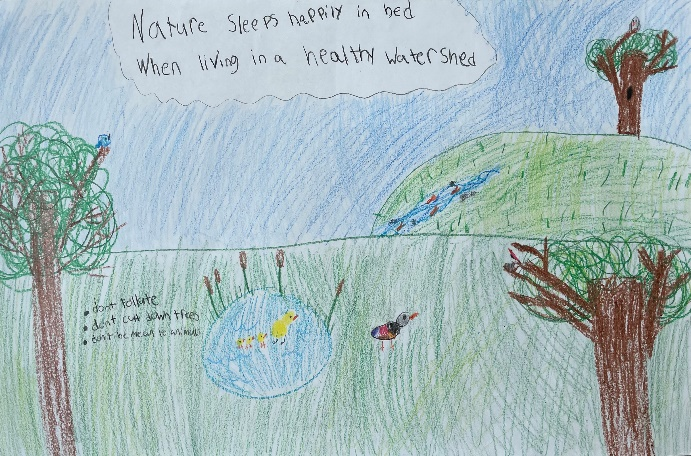 Nature Sleeps happily in bed
When living in a healthy Watershed
• dont Pollute
• dont cutt down trees
• dont be mean to animals